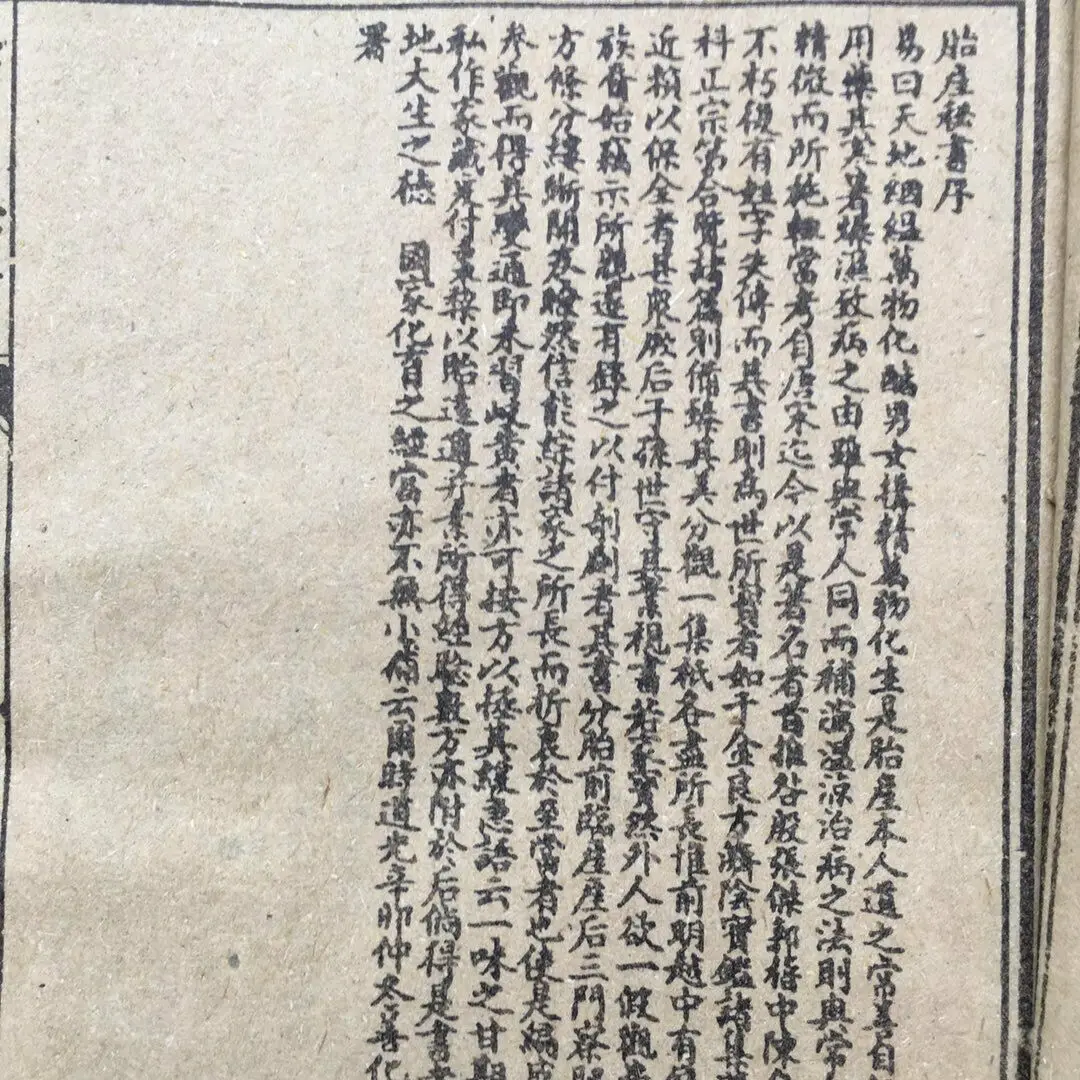 胎産秘書序
易曰天地絪緼萬物化醕男女搆精萬物化生是胎産本人道之常養自
用藥其寒暑燥濕致病之由雖與常人同而補瀉温涼治病之法則與常
精微而所純粗當考自唐宋迄今以是著名者首推昝殷張傑郭稽中陳
不朽復有姓字失傳而其書則為世所寳者如千金良方濟陰寳鑑諸其
科正宗第合覽諸篇别備集其其分觀一集秪各盡所長惟前明越中有
近頼以保全者甚眾厥后子孫世守其業視書若至寳然外人欲一假觀
族晉始竊示所親遂有録之以付剞劂者其書分胎前臨産産后三門
方條分縷晰閲及瞭然信能綜諸家之所長而折衷於至當者也使是編
参觀而得其變通即未習岐黄者亦可按方以拯其緩急語云一味之甘
私作家藏爰付棗棃以貽遠邇并素所得經驗数方亦附於后倘得是書
地大生之德　國家化育之經當亦不無小補云爾時道光辛卯仲冬
署